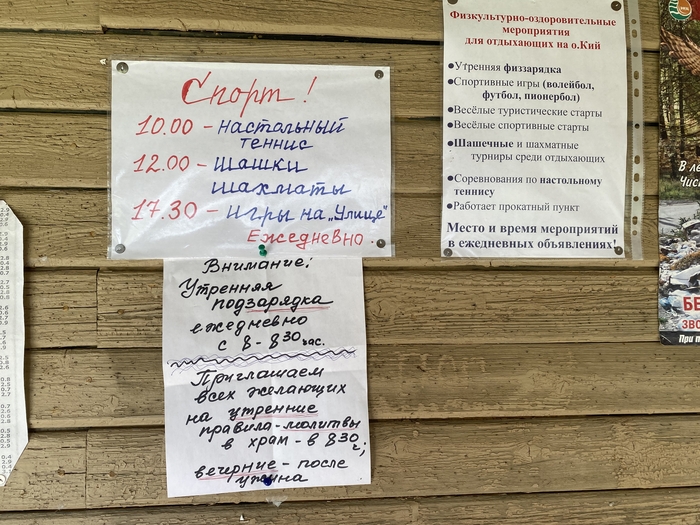 Спорт!
10.00 – настольный
теннис
12.00 – шашки
шахматы
17.30 – игры на „Улице"
Ежедневно.
Внимание!
Утренняя
подзарядка
ежедневно
с 8 - 8³⁰ час.
Приглашаем
всех желающих
на утренние
правила-молитвы
в храм - в 8³⁰ ч;
вечерние - после
ужина
Физкультурно-оздоровительные
мероприятия
для отдыхающих на о.Кий
●Утренняя физзарядка
●Спортивные игры (волейбол,
футбол, пионербол)
●Весёлые туристические старты
●Весёлые спортивные старты
●Шашечные и шахматные
турниры среди отдыхающих
●Соревнования по настольному
теннису
●Работает прокатный пункт
Место и время мероприятий
в ежедневных объявлениях!